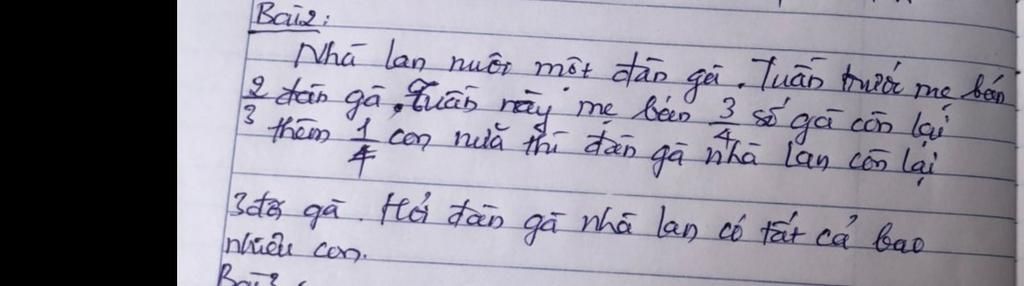 Bài 2:
Nhà lan nuôi một đàn gà. Tuần trước mẹ bán
2/3 đàn gà, Tuần này mẹ bán 3/4 số gà còn lại
thêm 1/4 con nữa thì đàn gà nhà lan còn lại
3 gà. Hỏi đàn gà nhà lan có tất cả bao
nhiêu con.